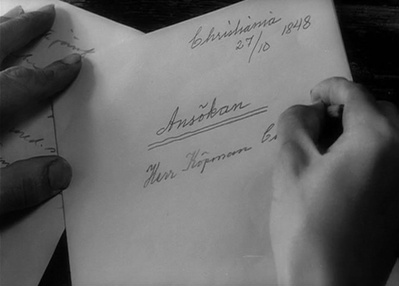 Christiania
27/10 1848
Ansökan
Herr Köpman